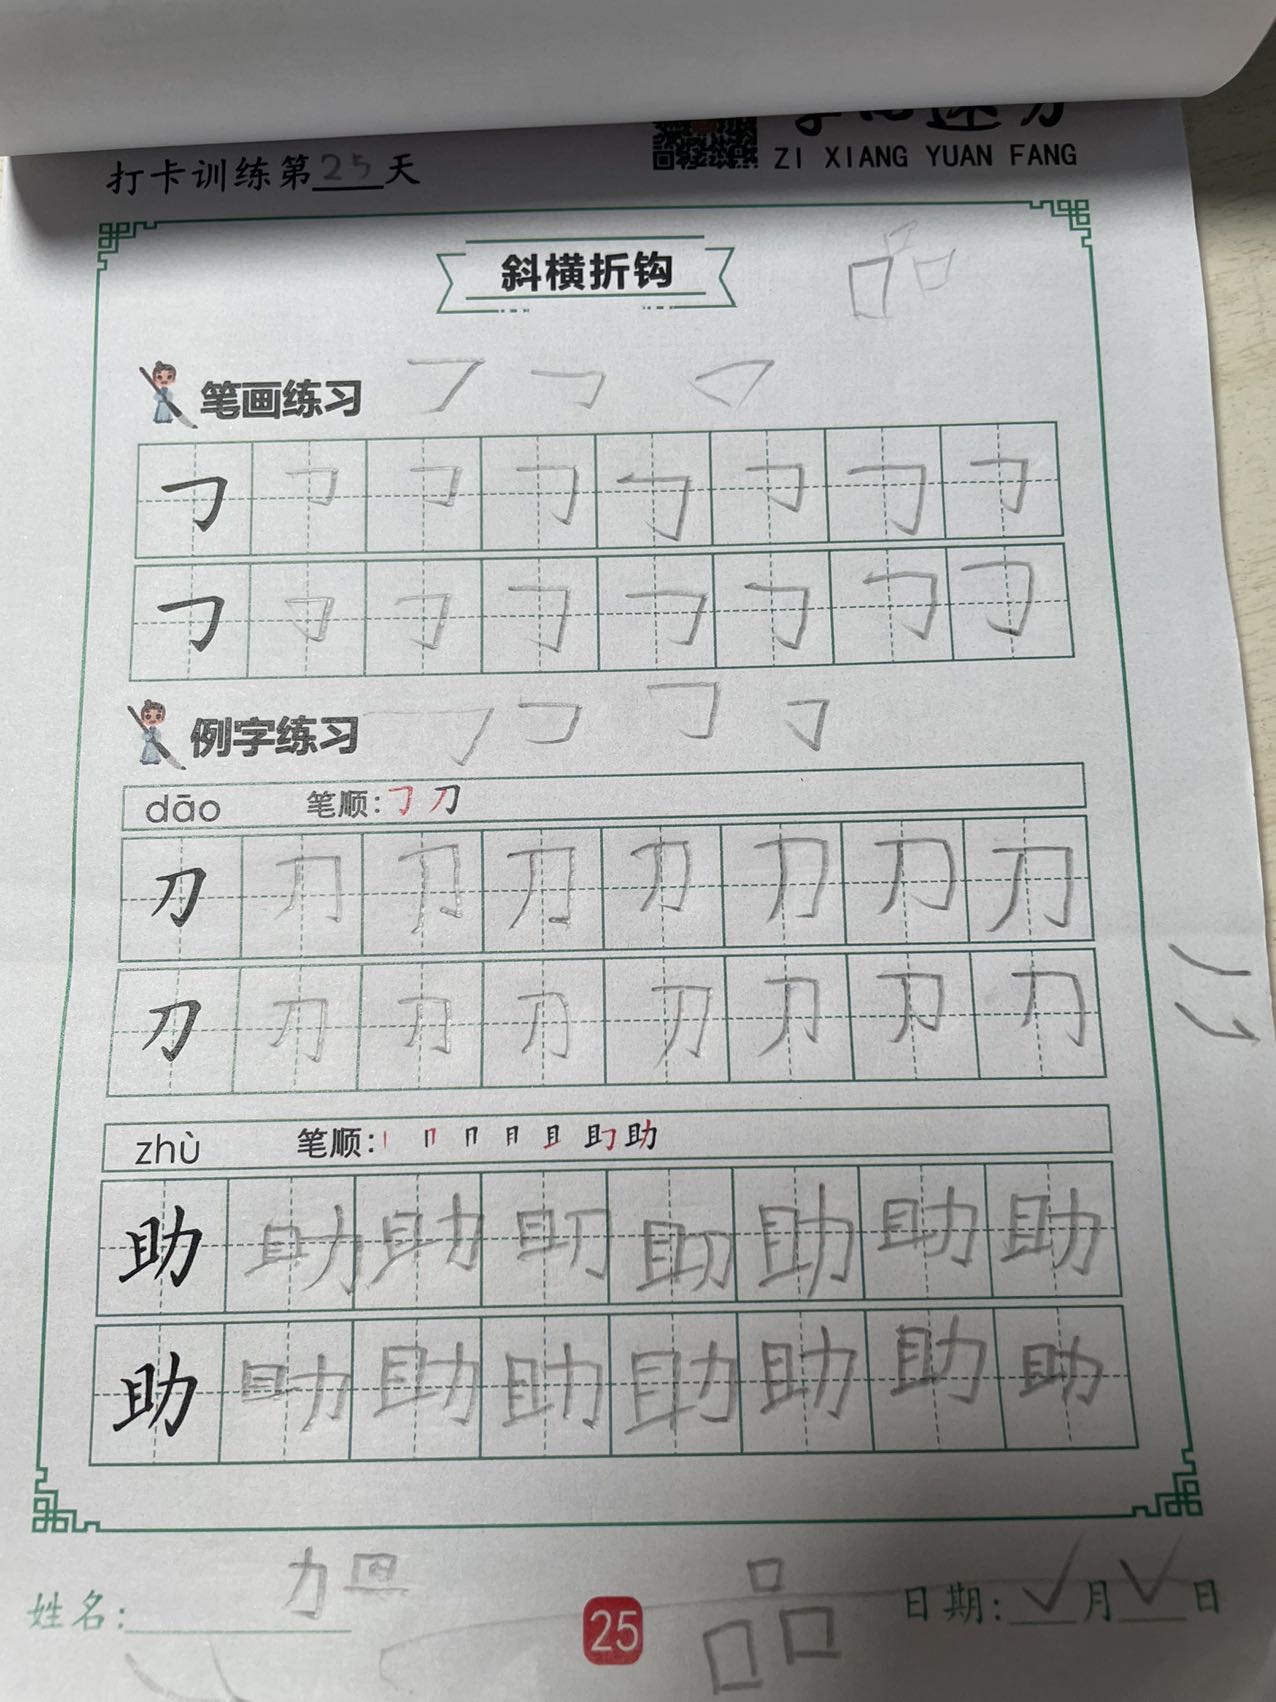 ZI XIANG YUAN FANG
打卡训练第25天
斜横折钩
品
笔画练习
例字练习
dāo 笔顺:㇆ 刀
刀 刀 刀 刀 刀 刀 刀 刀
刀 刀 刀 刀 刀 刀 刀 刀
zhù 笔顺: 助
助 助 助 助 助 助 助 助
助 助 助 助 助 助 助 助
力
品
姓名: 25 日期: ✓月✓日